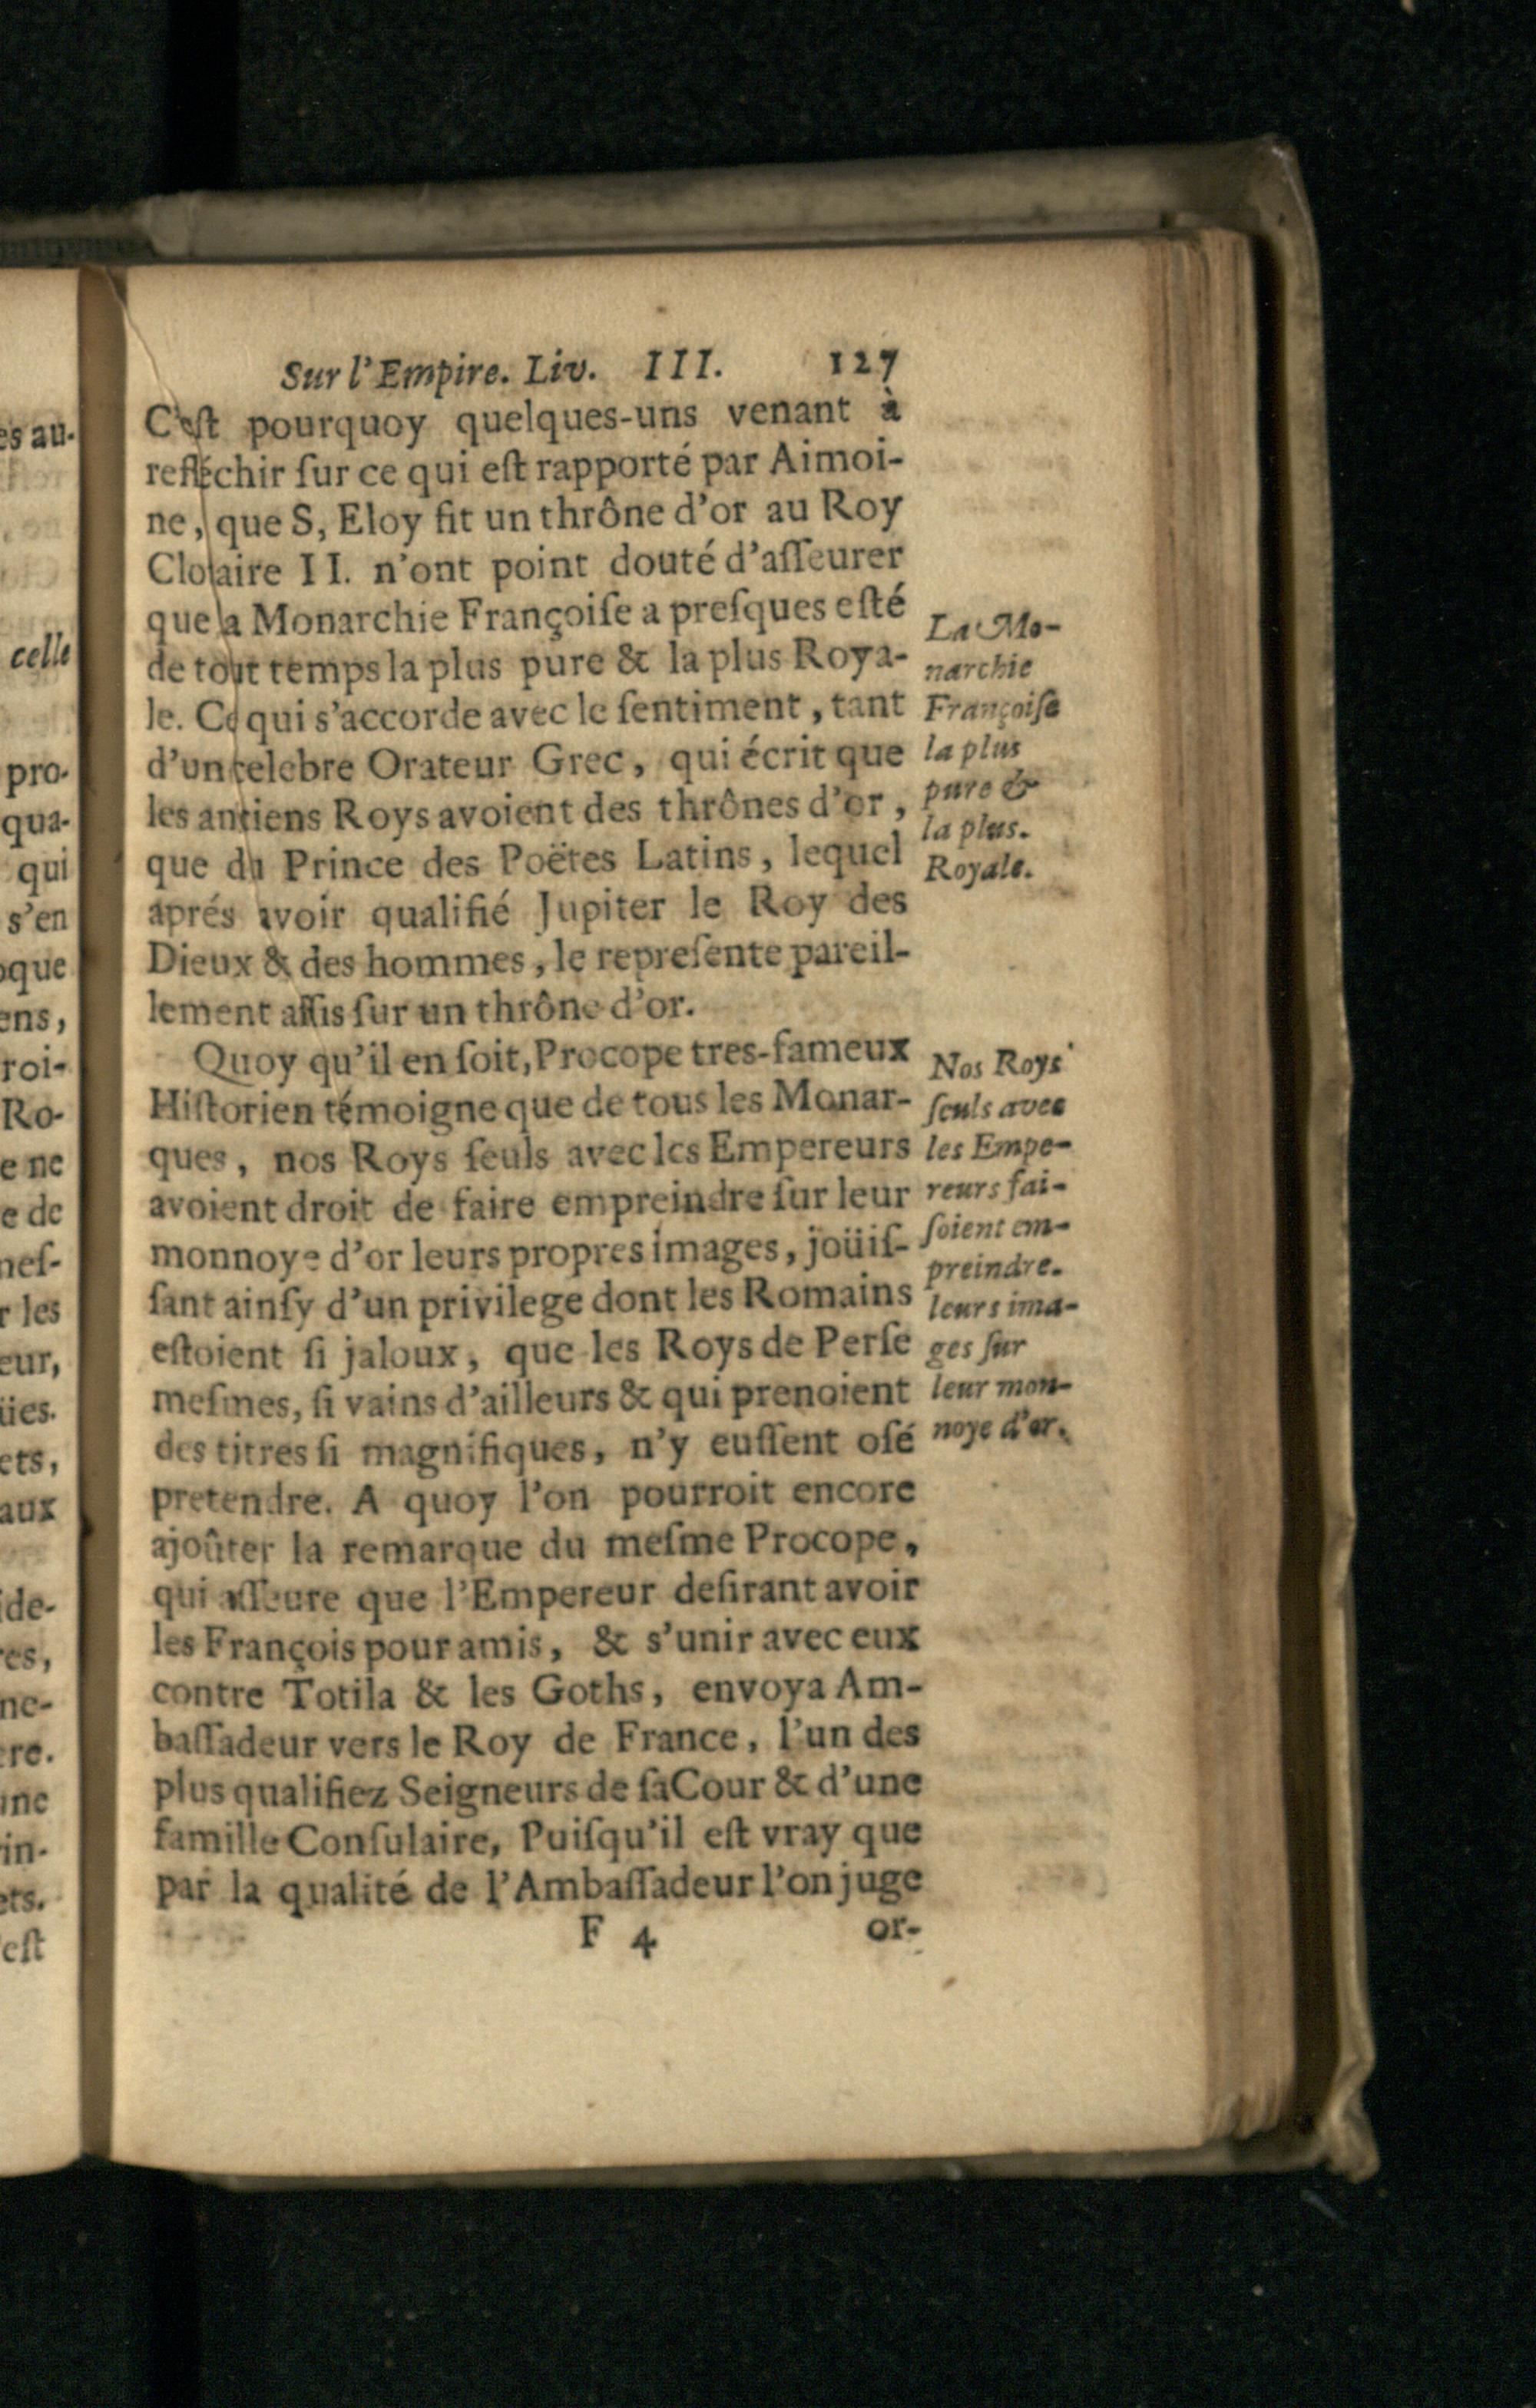 Sur l'Empire. Liv. III. 127
C'eſt pourquoy quelques-uns venant à
reflechir ſur ce qui eſt rapporté par Aimoi-
ne, que S, Eloy fit un thrône d'or au Roy
Clotaire II. n'ont point douté d'aſſeurer
que la Monarchie Françoiſe a preſques eſté
de tout temps la plus pure & la plus Roya-
le. Ce qui s'accorde avec le ſentiment, tant
d'un celebre Orateur Grec, qui écrit que
les antiens Roys avoient des thrônes d'or,
que du Prince des Poëtes Latins, lequel
aprés avoir qualifié Jupiter le Roy des
Dieux & des hommes, le repreſente pareil-
lement aſſis ſur un thrône d'or.
La Mo-
narchie
Françoiſe
la plus
pure &
la plus.
Royale.
Quoy qu'il en ſoit, Procope tres-fameux
Hiſtorien témoigne que de tous les Monar-
ques, nos Roys ſeuls avec les Empereurs
avoient droit de faire empreindre ſur leur
monnoye d'or leurs propres images, joüiſ-
ſant ainſy d'un privilege dont les Romains
eſtoient ſi jaloux, que les Roys de Perſe
meſmes, ſi vains d'ailleurs & qui prenoient
des titres ſi magnifiques, n'y euſſent oſé
pretendre. A quoy l'on pourroit encore
ajoûter la remarque du meſme Procope,
qui aſſeure que l'Empereur deſirant avoir
les François pour amis, & s'unir avec eux
contre Totila & les Goths, envoya Am-
baſſadeur vers le Roy de France, l'un des
plus qualifiez Seigneurs de ſaCour & d'une
famille Conſulaire, Puiſqu'il eſt vray que
par la qualité de l'Ambaſſadeur l'on juge
Nos Roys
ſeuls avec
les Empe-
reurs fai-
ſoient em-
preindre.
leurs ima-
ges ſur
leur mon-
noye d'or.
F 4 or-
es au-
celle
pro-
qua-
qui
s'en
oque
ens,
roi-
Ro-
e ne
e de
neſ-
r les
eur,
üies.
ets,
aux
ide-
res,
ne-
ere.
une
in-
ets.
'eſt